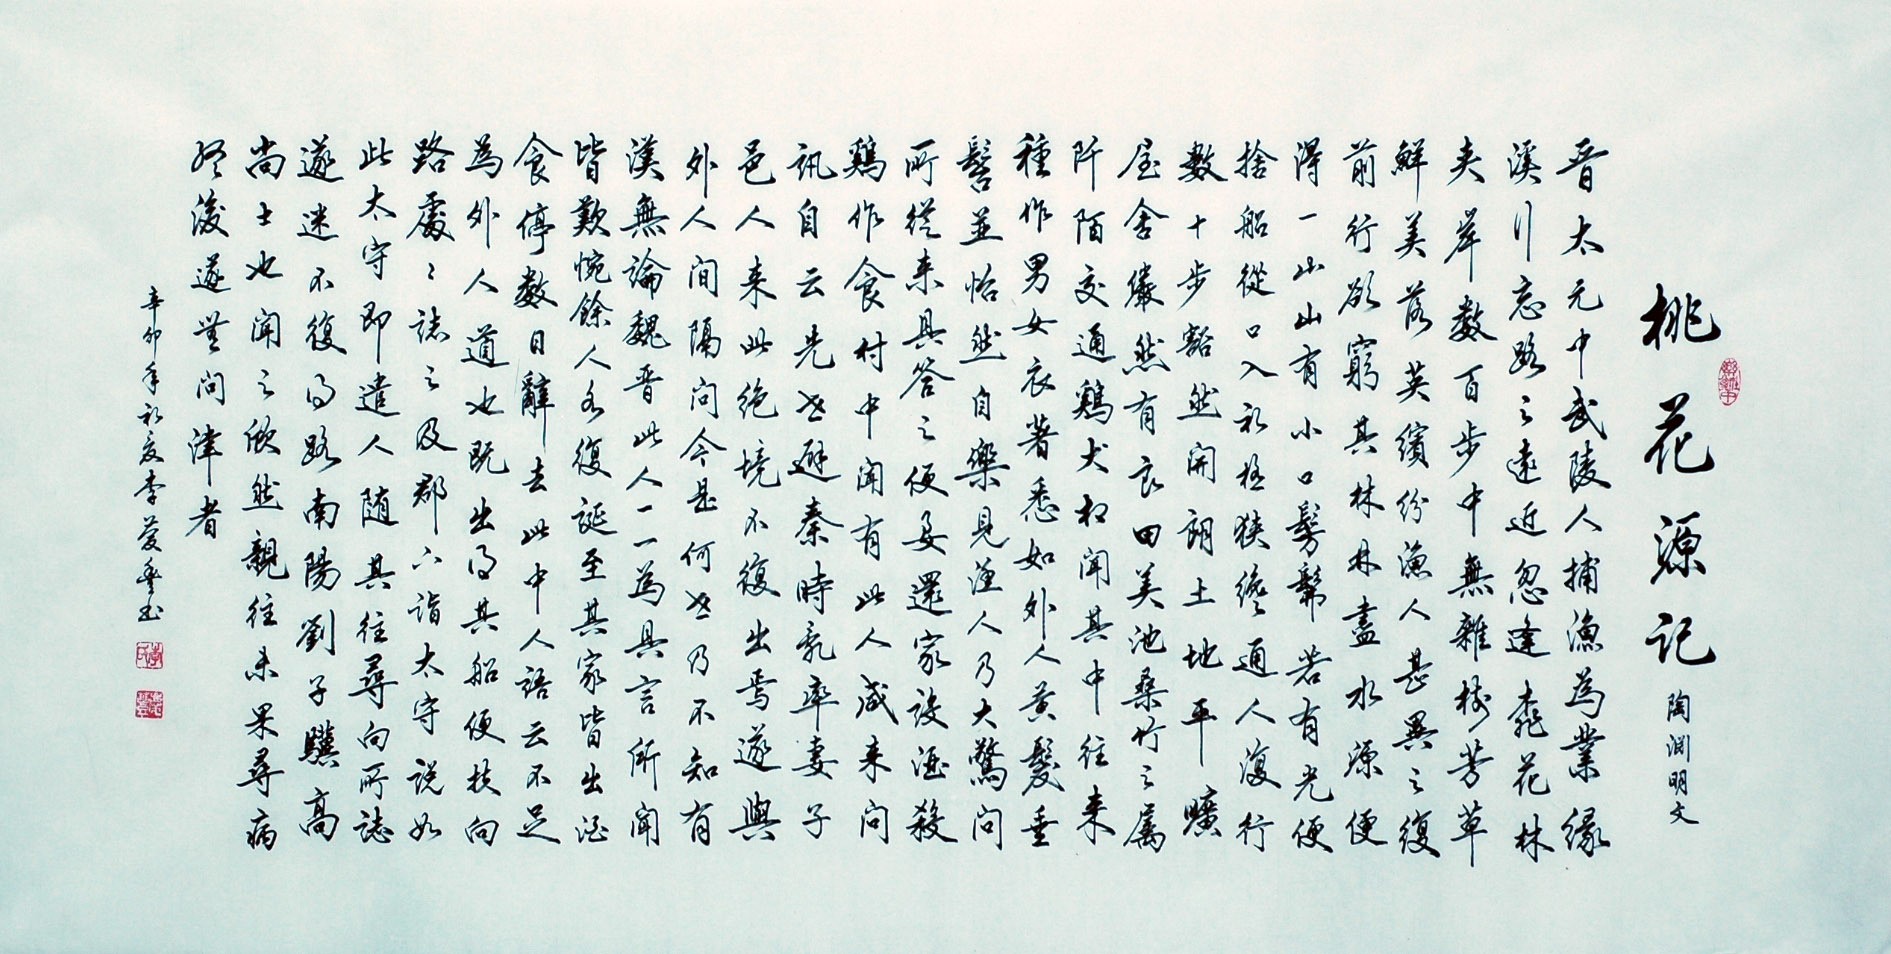 桃花源记
陶渊明文
晋太元中武陵人捕渔為業缘
溪行忘路之遠近忽逢桃花林
夹岸數百步中無雜树芳草
鮮美落英繽纷渔人甚異之復
前行欲窮其林林盡水源便
得一山山有小口髣髴若有光便
捨船從口入初極狭纔通人復行
數十步豁然開朗土地平曠
屋舍儼然有良田美池桑竹之属
阡陌交通鷄犬相闻其中往来
種作男女衣著悉如外人黄髮垂
髫並怡然自樂見渔人乃大驚问
所從来具答之便要還家设酒殺
鷄作食村中闻有此人咸来问
訊自云先世避秦時乱率妻子
邑人来此绝境不復出焉遂與
外人间隔问今是何世乃不知有
漢無論魏晋此人一一為具言所闻
皆歎惋餘人各復延至其家皆出酒
食停數日辭去此中人語云不足
為外人道也既出得其船便扶向
路處處誌之及郡下詣太守说如
此太守即遣人随其往尋向所誌
遂迷不復得路南陽劉子驥高
尚士也闻之欣然親往未果尋病
终後遂無问津者
辛卯年初夏李